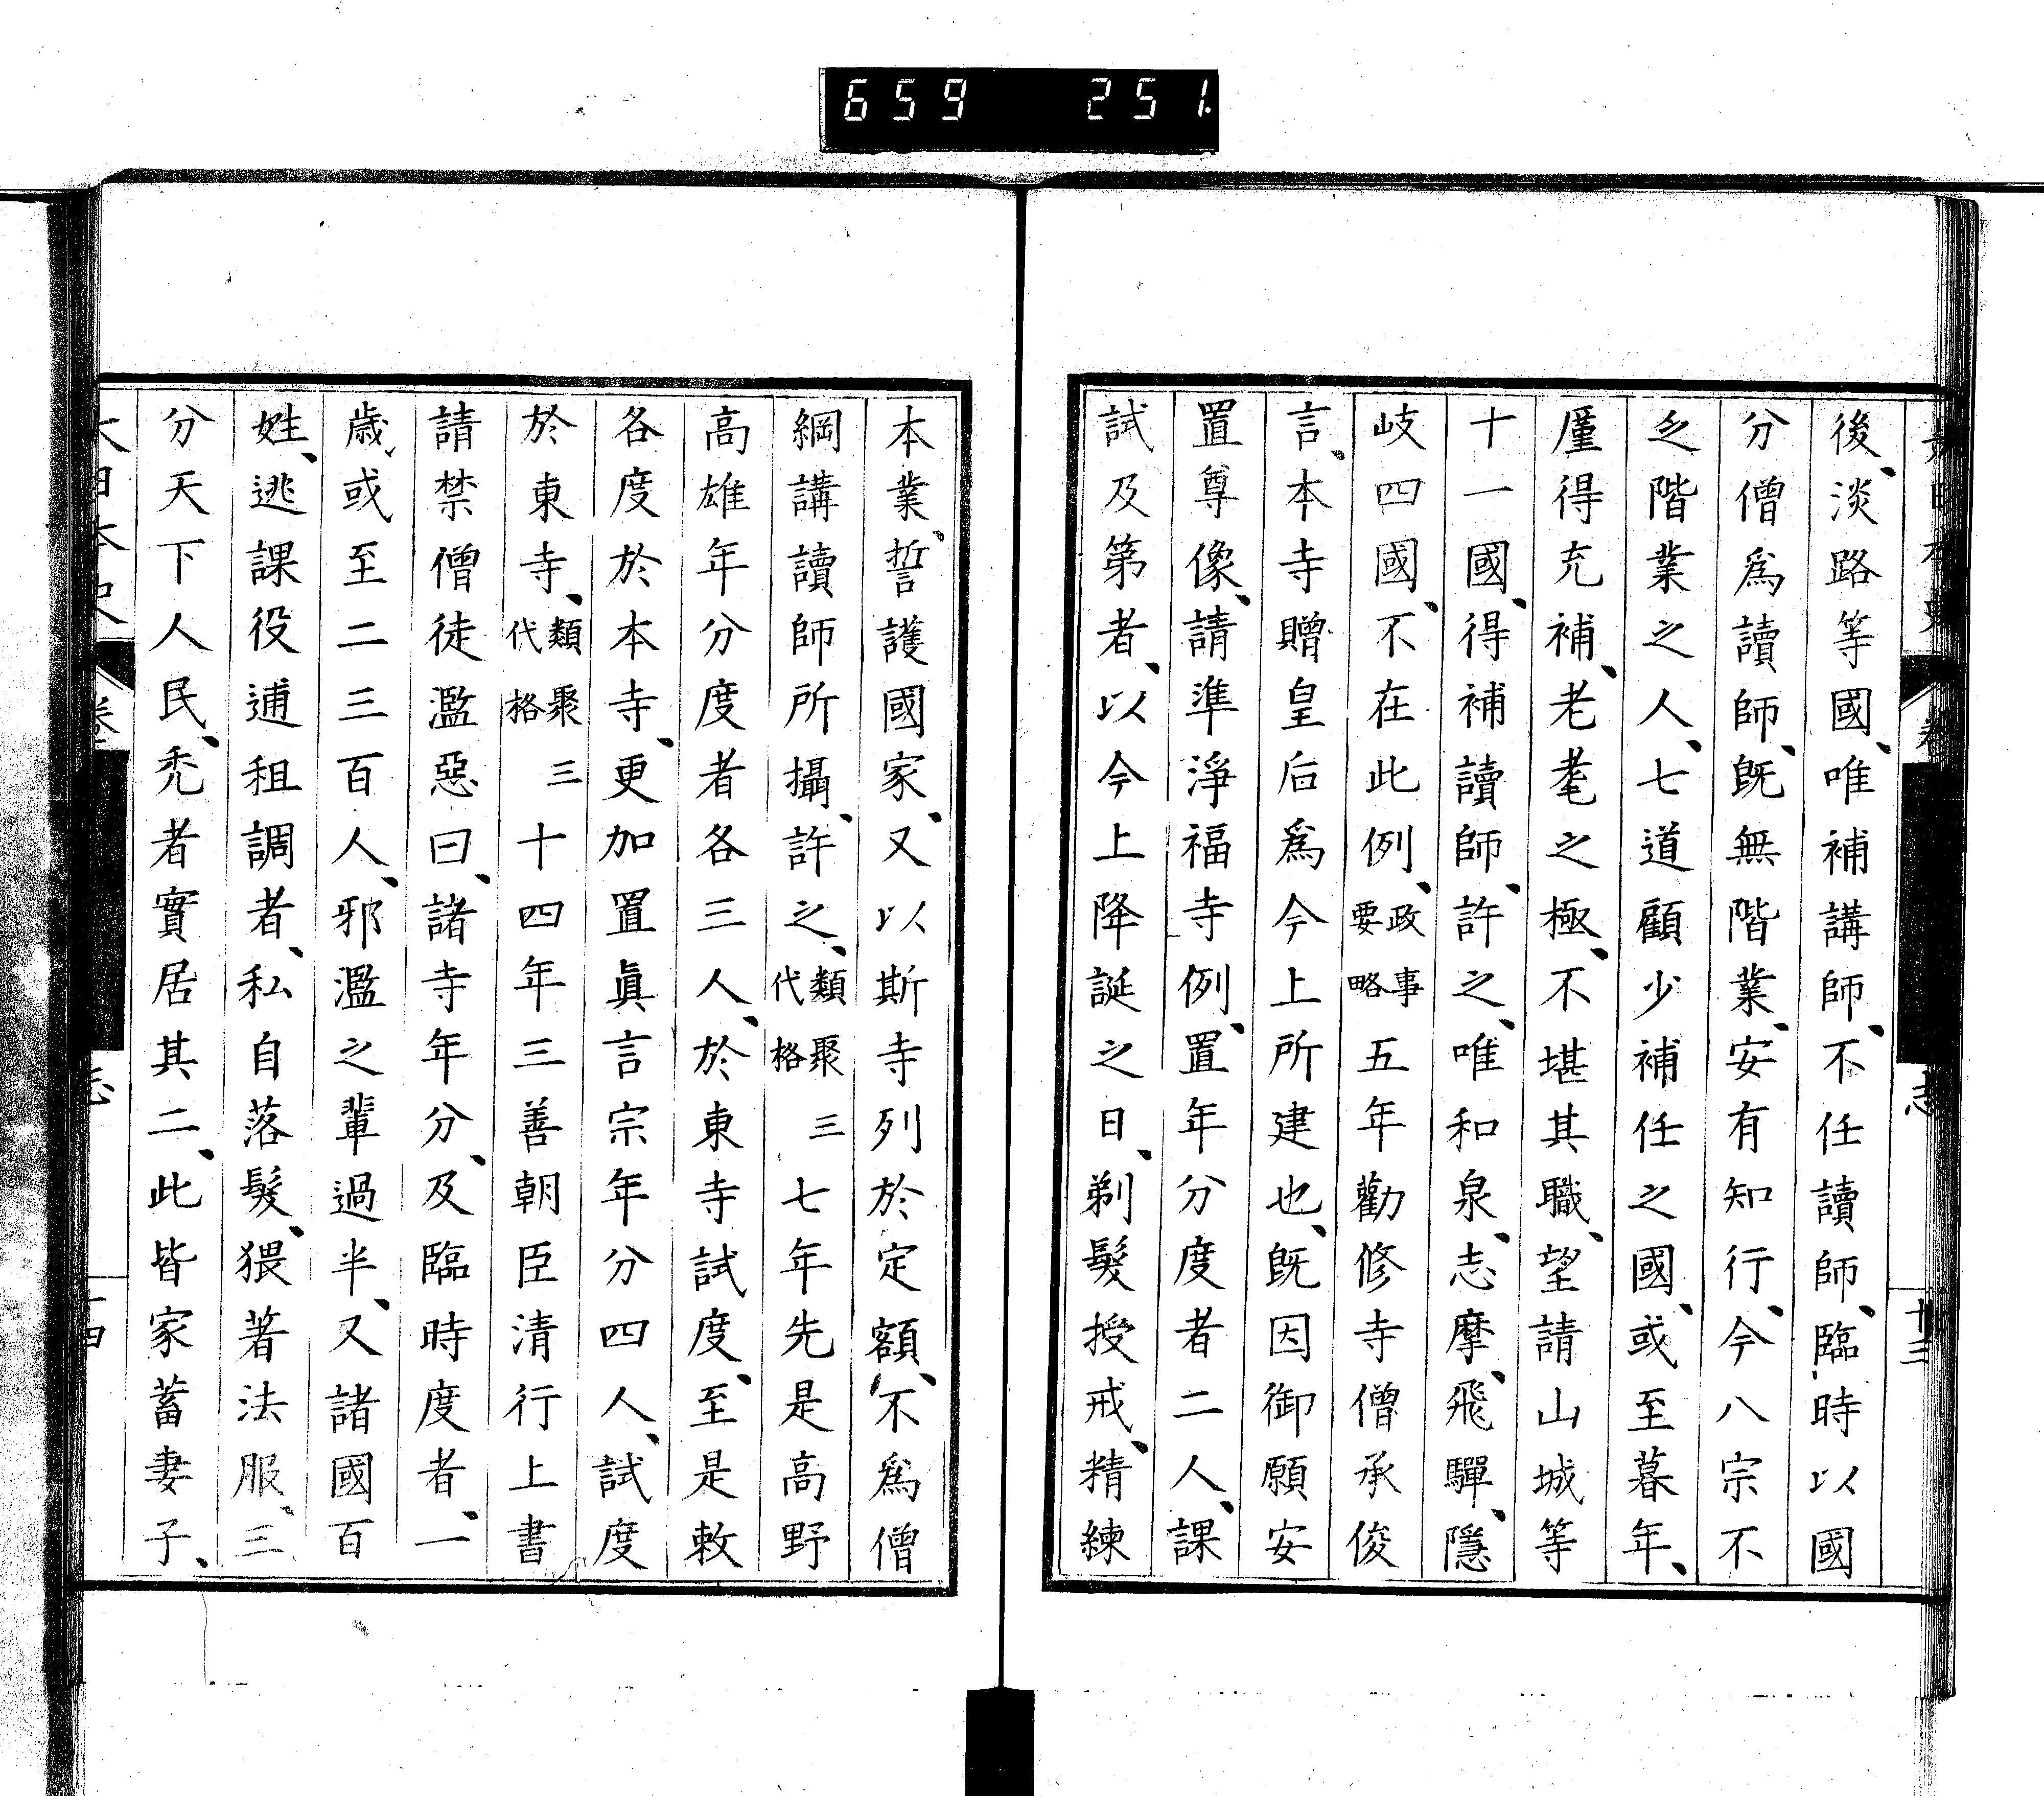 659 251
後、淡路等國、唯補講師、不任讀師、臨時以國
分僧爲讀師、既無階業、安有知行、今八宗不
乏階業之人、七道顧少補任之國、或至暮年、
厪得充補、老耄之極、不堪其職、望請山城等
十一國、得補讀師、許之、唯和泉、志摩、飛驒、隱
岐四國、不在此例、政事要略五年勸修寺僧承俊
言、本寺贈皇后爲今上所建也、既因御願安
置尊像、請準淨福寺例、置年分度者二人、課
試及第者、以今上降誕之日、剃髮授戒、精練
本業、誓護國家、又以斯寺列於定額、不爲僧
綱講讀師所攝、許之、類聚三代格七年先是高野
高雄年分度者各三人、於東寺試度、至是敕
各度於本寺、更加置眞言宗年分四人、試度
於東寺、類聚三代格十四年三善朝臣清行上書
請禁僧徒濫惡曰、諸寺年分、及臨時度者、一
歲、或至二三百人、邪濫之輩過半、又諸國百
姓、逃課役逋租調者、私自落髮、猥著法服、三
分天下人民、禿者實居其二、此皆家蓄妻子、
大日本史
卷
志
十四